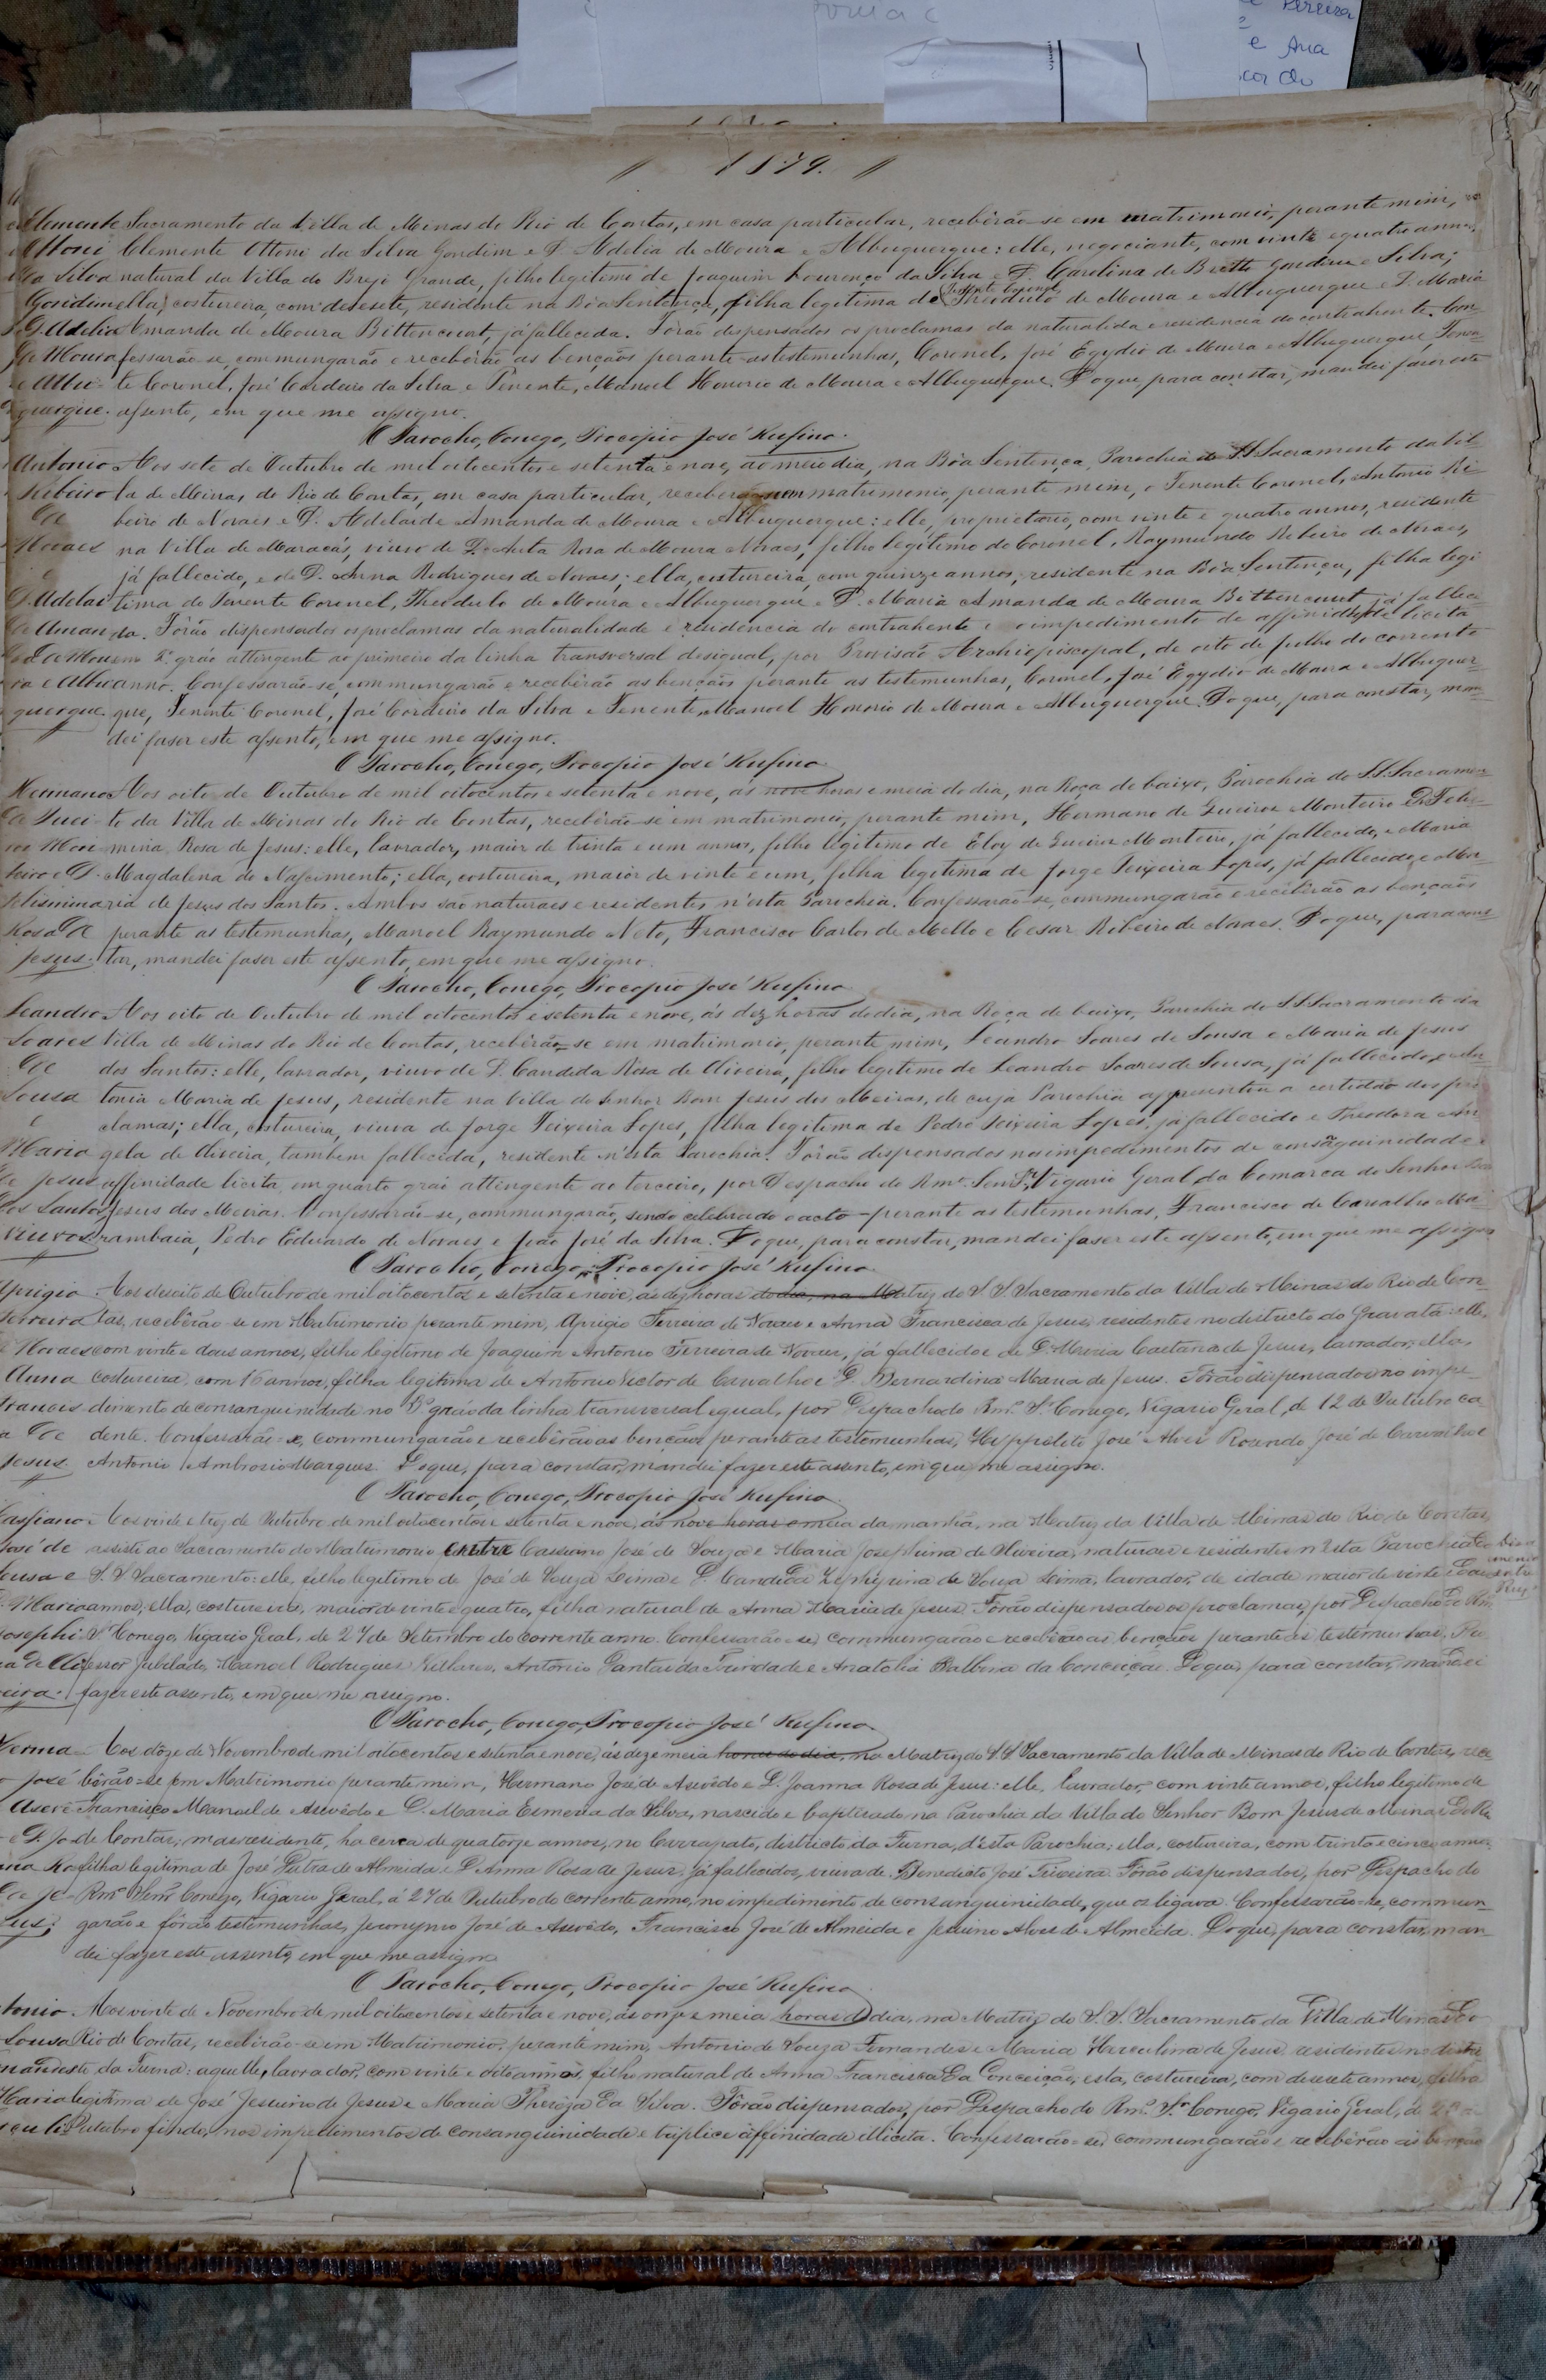 Pereira
e Ana
1879.
Clemente Sacramento da Villa de Minas do Rio de Contas, em casa particular, receberão-se em matrimonio, perante mim,
Ottoni Clemente Ottoni da Silva Gondim e D. Adelia de Moura e Albuquerque: elle, negociante, com vinte e quatro annos,
da Silva natural da Villa do Brejo Grande, filho legitimo de Joaquim Lourenço da Silva e D. Carolina de Britto Gondim e Silva;
Gondim ella, costureira, com desesete, residente na Bôa Sentença, filha legitima do Tenente Coronel Theodulo de Moura e Albuquerque e D. Maria
D. Adelia Amanda de Moura Bittencourt, já fallecida. Fôrão dispensados os proclamas da naturalida e residencia do contrahente. Con-
de Moura fessarão-se, commungarão e receberão as bençãos perante as testemunhas, Coronel, José Egydio de Moura e Albuquerque, Tenen-
e Albu- te Coronel, José Cordeiro da Silva e Tenente, Manoel Honorio de Moura e Albuquerque. Do que, para constar, mandei faser este
querque. assento, em que me assigno.
O Parocho, Conego, Procopio José Rufino.
Antonio Aos sete de Outubro de mil oitocentos e setenta e nove, ao meio dia, na Bôa Sentença, Parochia do SS. Sacramento da Vil-
Ribeiro la de Minas do Rio de Contas, em casa particular, receberão-se em matrimonio, perante mim, o Tenente Coronel, Antonio Ri-
de beiro de Novaes e D. Adelaide Amanda de Moura e Albuquerque: elle, proprietario, com vinte e quatro annos, residente
Novaes na Villa de Maracás, viuvo de D. Anita Rosa de Moura Novaes, filho legitimo do Coronel, Raymundo Ribeiro de Novaes,
e já fallecido, e de D. Anna Rodrigues de Novaes; ella, costureira, com quinze annos, residente na Bôa Sentença, filha legi-
D. Adelai- tima do Tenente Coronel, Theodulo de Moura e Albuquerque e D. Maria Amanda de Moura Bittencourt, já falleci-
de Aman- da. Fôrão dispensados os proclamas da naturalidade e residencia do contrahente e o impedimento de affinidade licita
da de Mou- em 2.º gráo attingente ao primeiro da linha transversal desigual, por Provisão Archiepiscopal, de oito de Julho do corrente
ra e Albu- anno. Confessarão-se, commungarão e receberão as bençãos perante as testemunhas, Coronel, José Egydio de Moura e Albuquer-
querque. que, Tenente Coronel, José Cordeiro da Silva e Tenente, Manoel Honorio de Moura e Albuquerque. Do que, para constar, man-
dei faser este assento, em que me assigno.
O Parocho, Conego, Procopio José Rufino
Hermano Aos oito de Outubro de mil oitocentos e setenta e nove, ás nove horas e meia do dia, na Roça de baixo, Parochia do SS. Sacramen-
de Quei- to da Villa de Minas do Rio de Contas, receberão-se em matrimonio, perante mim, Hermano de Queiroz Monteiro e D. Felis-
roz Mon- mina Rosa de Jesus: elle, lavrador, maior de trinta e um annos, filho legitimo de Eloy de Queiroz Monteiro, já fallecido, e Maria
teiro e D. Magdalena do Nascimento; ella, costureira, maior de vinte e um, filha legitima de Jorge Teixeira Lopes, já fallecido, e Ma-
Felismina ria de Jesus dos Santos. Ambos são naturaes e residentes n'esta Parochia. Confessarão-se, commungarão e receberão as bençãos
Rosa de perante as testemunhas, Manoel Raymundo Neto, Francisco Carlos de Mello e Cesar Ribeiro de Novaes. Do que, para cons-
Jesus. tar, mandei faser este assento, em que me assigno.
O Parocho, Conego, Procopio José Rufino
Leandro Aos oito de Outubro de mil oitocentos e setenta e nove, ás dez horas do dia, na Roça de baixo, Parochia do SS. Sacramento da
Soares Villa de Minas do Rio de Contas, receberão-se em matrimonio, perante mim, Leandro Soares de Sousa e Maria de Jesus
de dos Santos: elle, lavrador, viuvo de D. Candida Rosa de Oliveira, filho legitimo de Leandro Soares de Sousa, já fallecido, e An-
Sousa tonia Maria de Jesus, residente na Villa do Senhor Bom Jesus dos Meiras, de cuja Parochia appresentou a certidão dos pro-
e clamas; ella, costureira, viuva de Jorge Teixeira Lopes, filha legitima de Pedro Teixeira Lopes, já fallecido e Theodora An-
Maria gela de Oliveira, tambem fallecida, residente n'esta Parochia. Fôrão dispensados nos impedimentos de consanguinidade e
de Jesus affinidade licita em quarto gráo attingente ao terceiro, por Despacho do Rmo. Senr. Vigario Geral da Comarca do Senhor Bom
dos Santos, Jesus dos Meiras. Confessarão-se, commungarão, sendo celebrado o acto perante as testemunhas, Francisco de Carvalho Ma-
viuvos rambaia, Pedro Eduardo de Novaes e João José da Silva. Do que, para constar, mandei faser este assento, em que me assigno
O Parocho, Conego, Procopio José Rufino.
Aprigio Aos desoito de Outubro de mil oitocentos e setenta e nove, ás dez horas do dia, na Matriz do S. S. Sacramento da Villa de Minas do Rio de Con-
Ferreira tas, receberão-se em Matrimonio perante mim, Aprigio Ferreira de Novaes e Anna Francisca de Jesus, residentes no districto do Gravatá: elle,
de Novaes com vinte e dous annos, filho legitimo de Joaquim Antonio Ferreira de Novaes, já fallecido e de D. Maria Caetana de Jesus, lavrador; ella,
Anna costureira, com 16 annos, filha legitima de Antonio Victor de Carvalho e D. Bernardina Maria de Jesus. Fôrão dispensados no impe-
Francis- dimento de consanguinidade no 3.º gráo da linha transversal egual, por Despacho do Rmo. Sr. Conego, Vigario Geral, de 12 de Outubro ca-
ca de dente. Confessarão-se, commungarão e receberão as bençãos perante as testemunhas, Hyppolito José Alves Rosendo José de Carvalho e
Jesus. Antonio Ambrosio Marques. Do que, para constar, mandei fazer este assento, em que me assigno.
O Parocho, Conego, Procopio José Rufino.
Cassiano Aos vinte e trez de Outubro de mil oitocentos e setenta e nove, ás nove horas e meia da manhã, na Matriz da Villa de Minas do Rio de Contas,
José de assisti ao Sacramento do Matrimonio entre Cassiano José de Souza e Maria Josephina de Oliveira, naturaes e residentes n'esta Parochia do
Sousa e S. S. Sacramento: elle, filho legitimo de José de Souza Lima e D. Candida Zephirina de Souza Lima, lavrador, de idade maior de vinte e
D. Maria annos; ella, costureira, maior de vinte e quatro, filha natural de Anna Maria de Jesus. Fôrão dispensados os proclamas, por Despacho do Rmo.
Josephi- Sr. Conego, Vigario Geral, de 27 de Setembro do corrente anno. Confessarão-se, commungarão e receberão as bençãos perante as testemunhas, Pro-
na de Oli- fessor Jubilado, Manoel Rodrigues Villares, Antonio Dantas da Trindade e Anatolia Balbina da Conceição. Do que, para constar, mandei
veira. fazer este assento, em que me assigno.
O Parocho, Conego, Procopio José Rufino.
Herma- Aos doze de Novembro de mil oitocentos e setenta e nove, ás dez e meia horas do dia, na Matriz do S. S. Sacramento da Villa de Minas do Rio de Contas, rece-
José bêrão-se em Matrimonio perante mim, Hermano José de Asevêdo e D. Joanna Rosa de Jesus: elle, lavrador, com vinte annos, filho legitimo de
Asevê- Francisco Manoel de Asevêdo e D. Maria Esmeria da Silva, nascido e baptisado na Parochia da Villa do Senhor Bom Jesus de Minas do Rio
e D. Jo- de Contas, mas residente, ha cerca de quatorze annos, no Carrapato, districto da Furna, d'esta Parochia; ella, costureira, com trinta e cinco annos,
nna Ro- filha legitima de José Dutra de Almeida e D. Anna Rosa de Jesus, já fallecidos, viuva de Benedicto José Teixeira. Fôrão dispensados, por Despacho do
de Je- Rmo. Senr. Conego, Vigario Geral, á 27 de Outubro do corrente anno, no impedimento de consanguinidade, que os ligava. Confessarão-se, commun-
sus. garão e fôrão testemunhas, Jeronymo José de Asevêdo, Francisco José de Almeida e Jesuino Alves de Almeida. Do que, para constar, man-
dei fazer este assento, em que me assigno.
O Parocho, Conego, Procopio José Rufino
tonio Aos vinte de Novembro de mil oitocentos e setenta e nove, ás onze e meia horas do dia, na Matriz do S. S. Sacramento da Villa de Minas do
Sousa Rio de Contas, receberão-se em Matrimonio, perante mim, Antonio de Souza Fernandes e Maria Herculina de Jesus, residentes no distri-
nandes cto da Furna: aquelle, lavrador, com vinte e oito annos, filho natural de Anna Francisca da Conceição, esta, costureira, com desesete annos, filha
Maria legitima de José Jesuino de Jesus e Maria Thereza da Silva. Fôrão dispensados, por Despacho do Rmo. Sr. Conego, Vigario Geral, de
rculi- Outubro findo, nos impedimentos de consanguinidade e triplice affinidade illicita. Confessarão-se, commungarão e receberão as bençãos